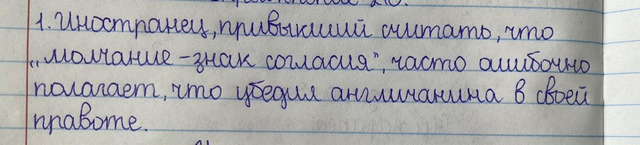 1. Иностранец, привыкший считать, что
„молчание – знак согласия", часто ошибочно
полагает, что убедил англичанина в своей
правоте.